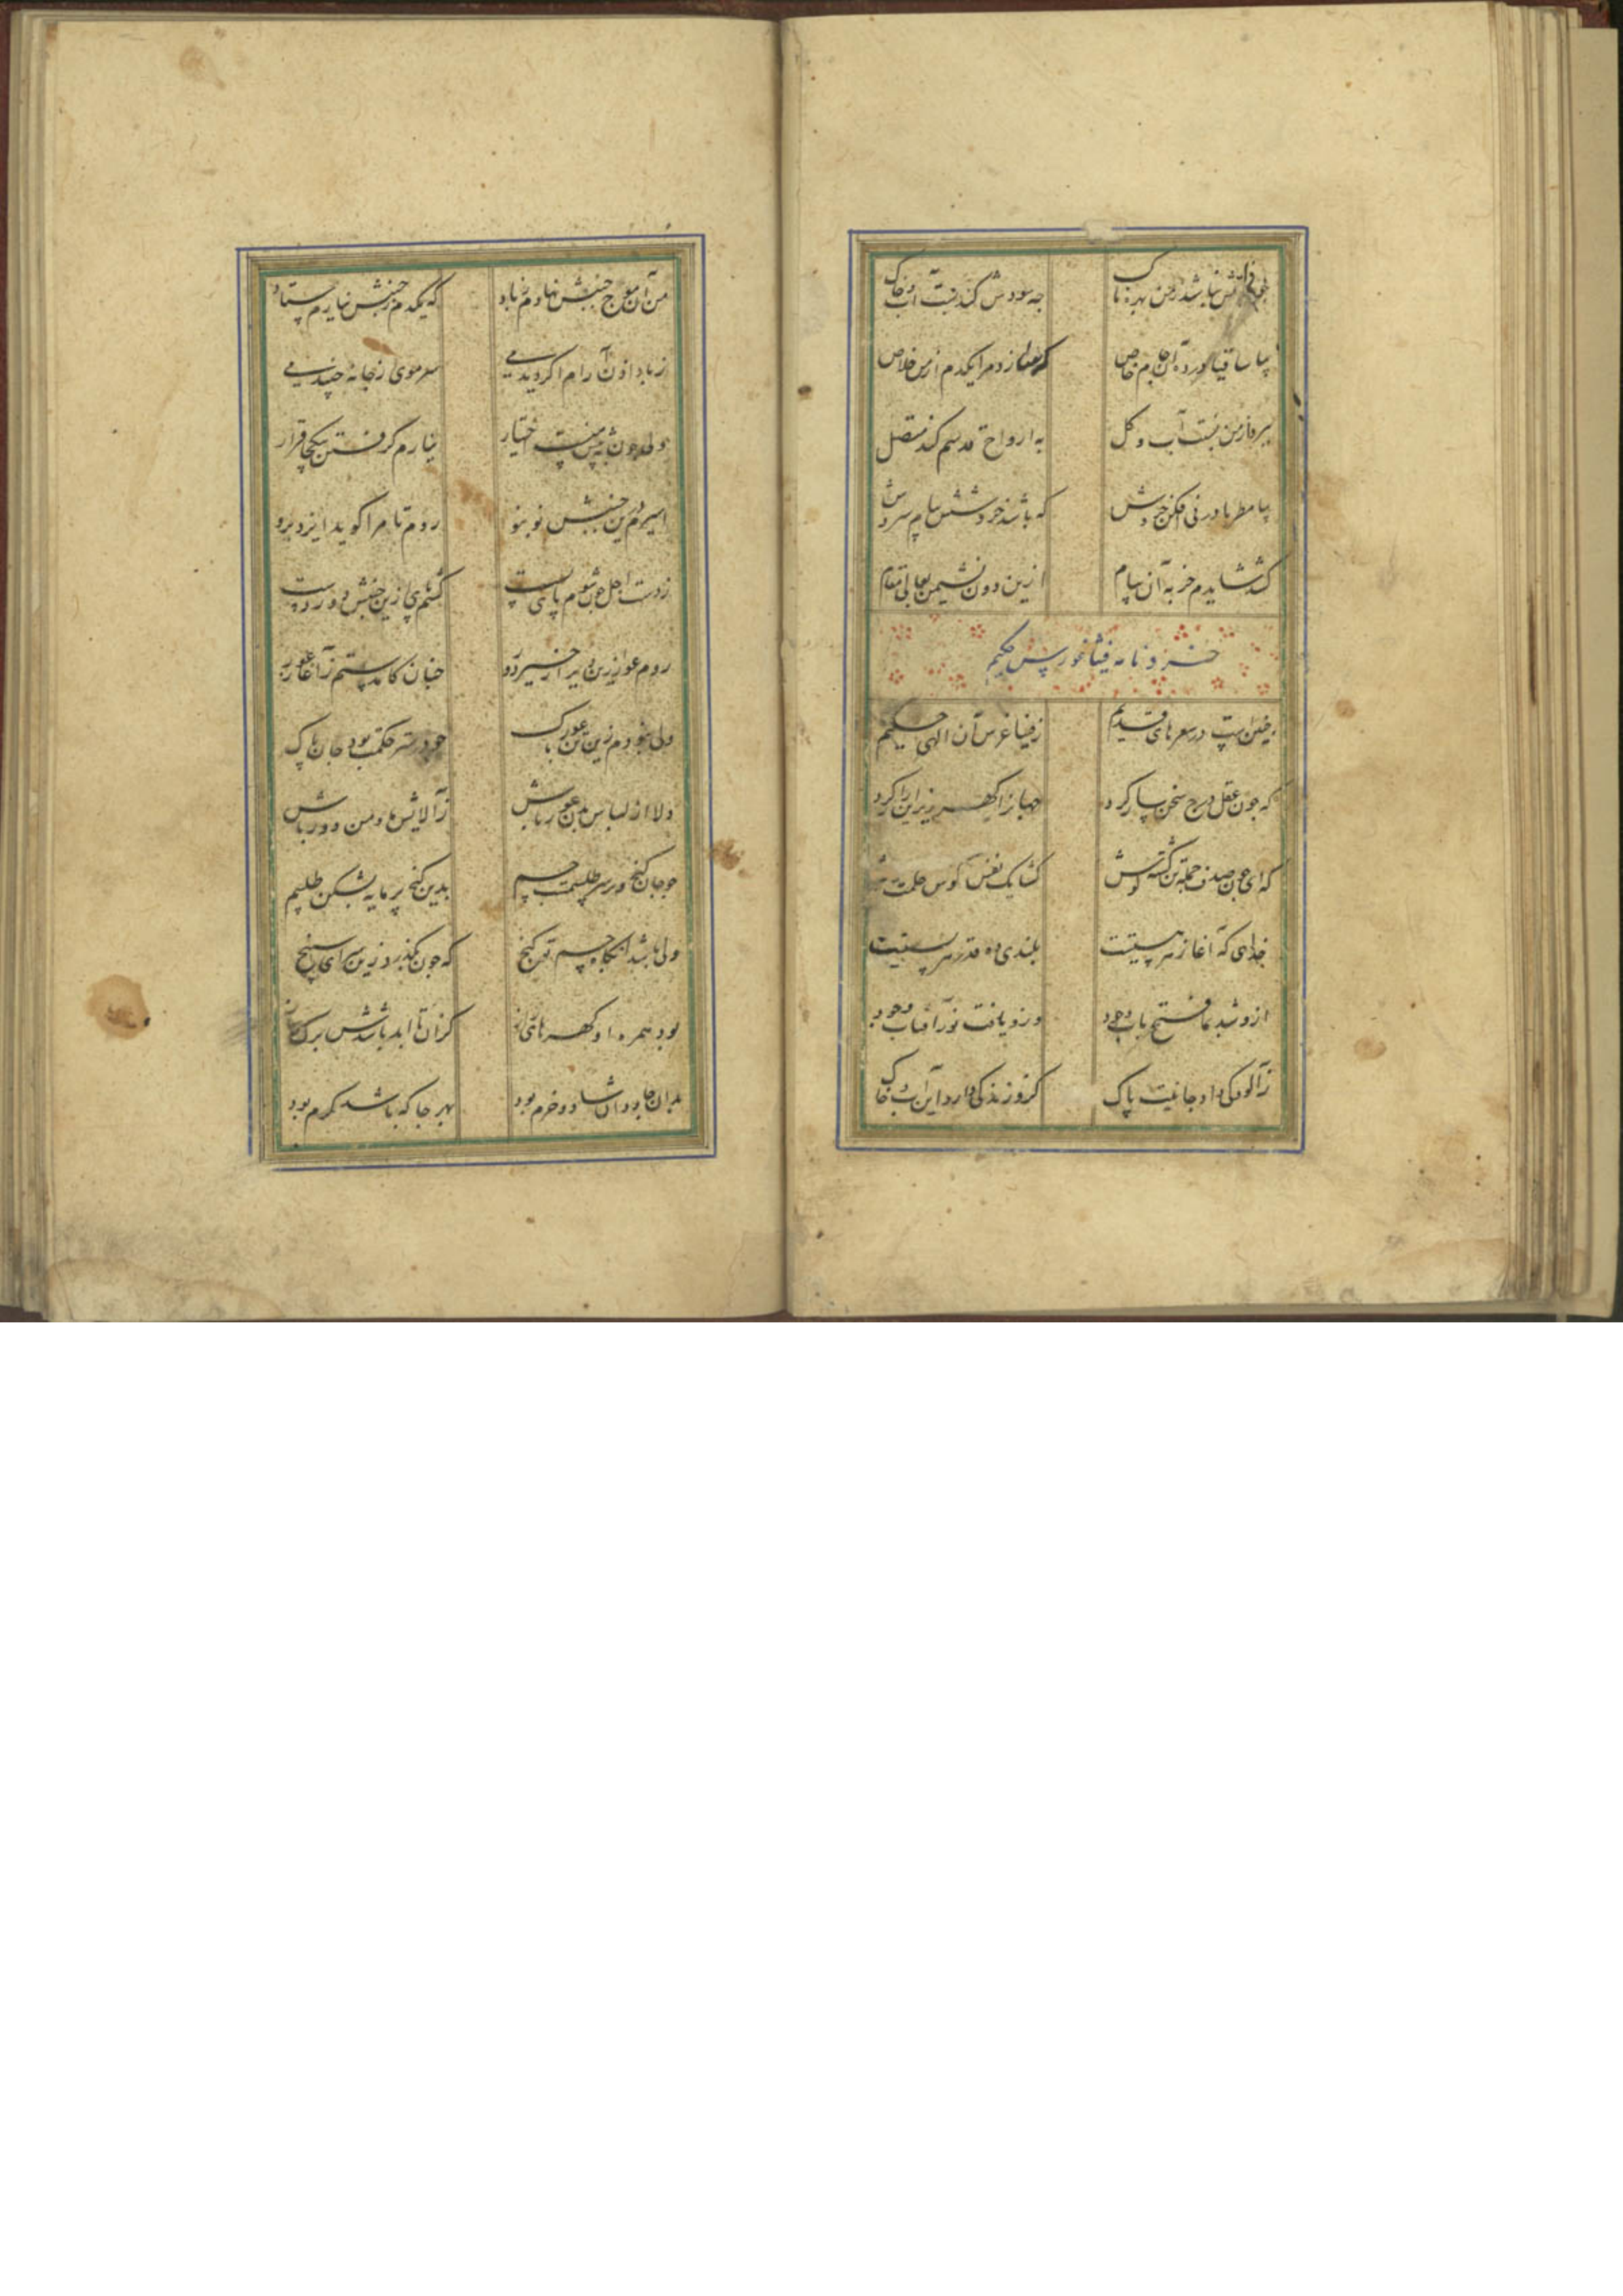 نباشد زمن بهره ناک چه سودش کند نسبت آب و خاک
بیا ساقیا در ده آن جام خاص که سازد مرا یکدم از من خلاص
ببرد ز من نسبت آب و کل به ارواح قدسم کند متصل
بیا مطربا در نی افکن خروش که باشد خروشش پیام سروش
کشد شایدم به آن پیام ازین دون نشیمن بعالی مقام
خردنامه فیثاغورس حکیم
چنین است در سفرهای قدیم ز فیثاغرس آن الهی حکیم
که چون عقل درج سخن باز کرد جهانرا کهر ریز این راز کرد
که ای چون صدف جمله تن کشته کوش کشا یک نفس کوش حکمت
خدایی که آغاز هر هستیست بلندی ده قدر هر پستیست
ازو شد مفتح باب وجود وزو یافت نور آفتاب وجود
ز آلودکی دار جانیت پاک کزو زندکی دارد این آب و خاک
من آن موج جنبش نهادم ز باد که یکدم ز جنبش نیارم ستاد
ز باد آرام اکر دیدمی سر موی از جا نه جنبیدمی
ولی چون نه پیش منست اختیار نیارم کرفتن بیکجا قرار
اسیرم درین جنبش نو بنو روم تا مرا کوید ایزد برو
ز دست اجل چون شوم پای بست کشم پای ازین جنبش دور دست
روم عور ازین دیر چنان کامدستم ز آغاز عور
ولی نبودم زین تن عور باک چو در ستر حکمت بود جان پاک
دلا از لباس بدن عور باش ز آلایش ما و من دور باش
چو جان کنج و بر سر طلسمست جسم بدین کنج پرمایه بشکن طلسم
ولی باشد آنکاه جسم تو کنج که چون بگذرد زین سرای سپنج
بود همره او کهرهای راز کزان تا ابد باشدش برک و ساز
بدان جاودان شاد و خرم بود بهر جا که باشد مکرم بود